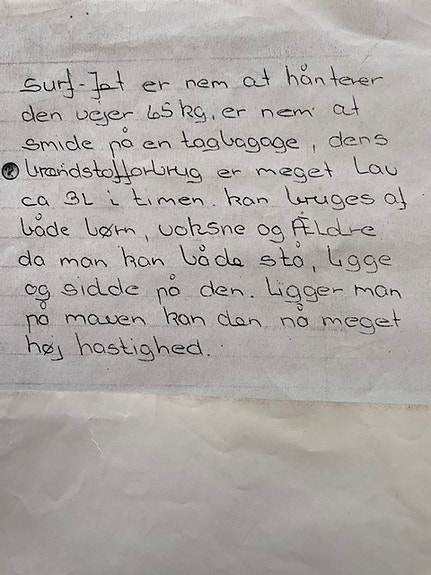 Surf-Jet er nem at hånterer
den vejer 45 kg, er nem at
smide på en tagbagage, dens
brændstofforbrug er meget Lav
ca 3L i timen. kan bruges af
både børn, voksne og Ældre
da man kan både stå, ligge
og sidde på den. Ligger man
på maven kan den nå meget
høj hastighed.